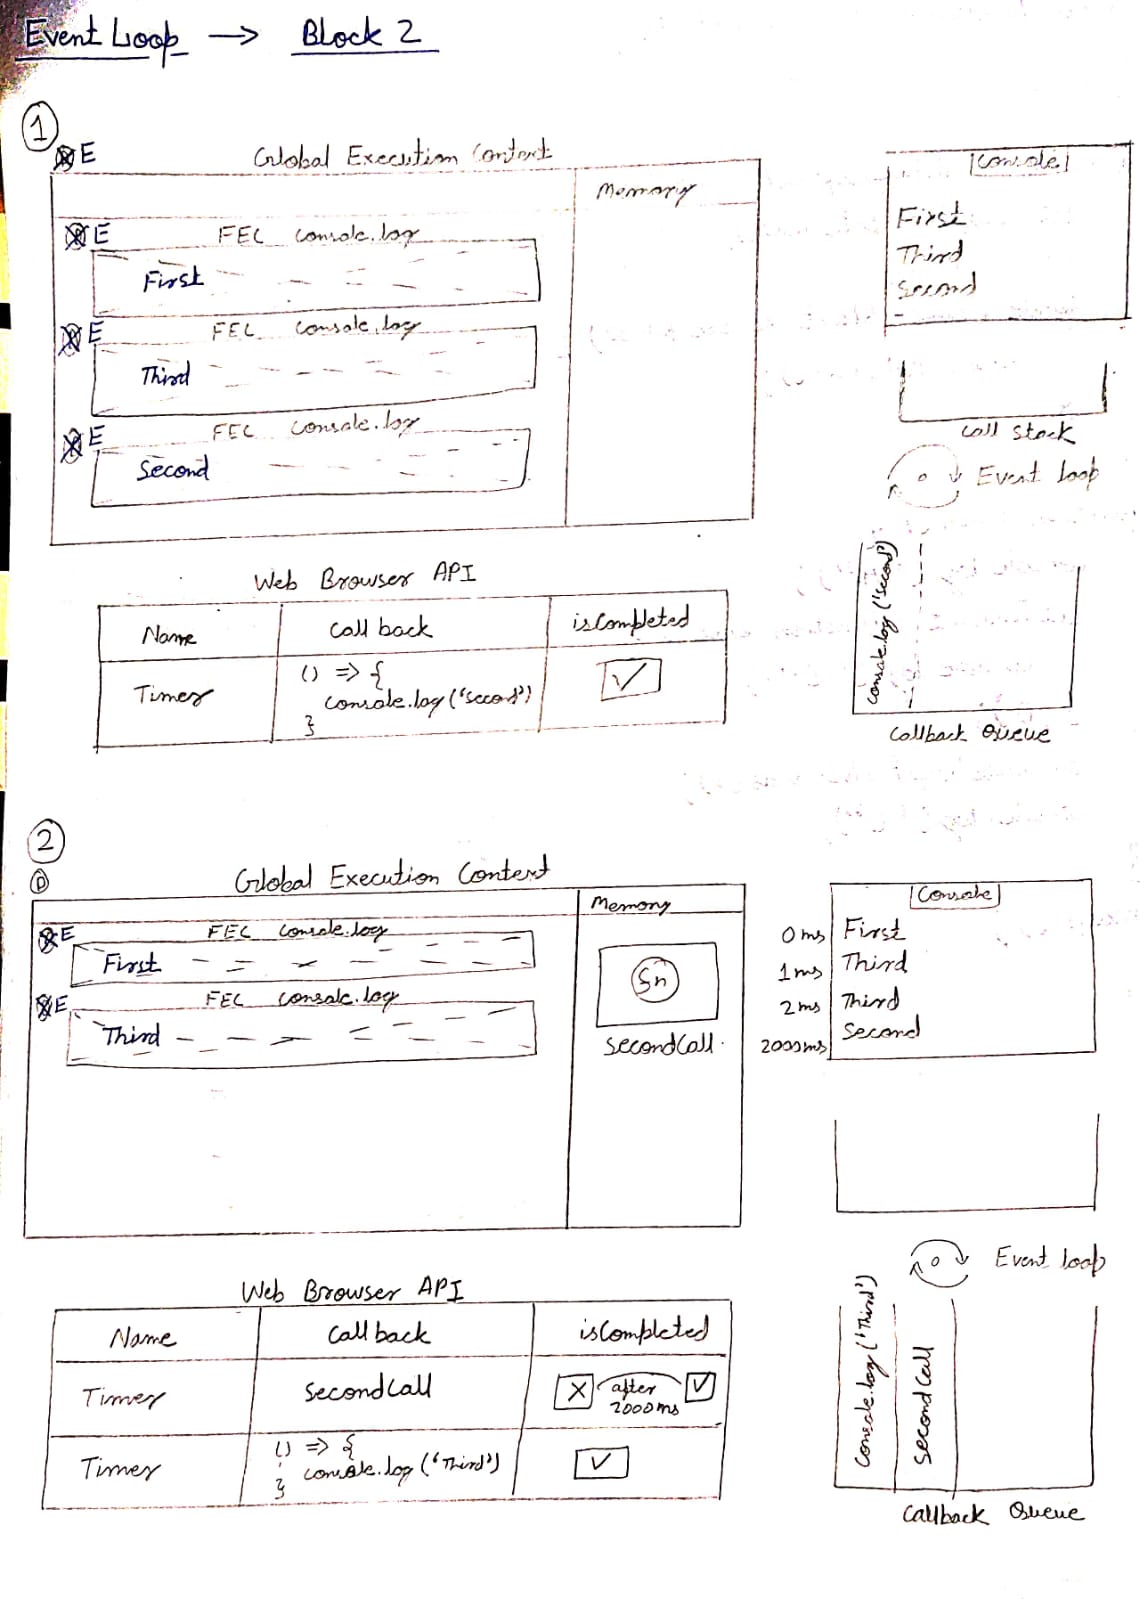 Event Loop → Block 2
1
E
Global Execution Context
Memory
E FEC console.log
First
E FEC console.log
Third
E FEC console.log
Second
Console
First
Third
Second
Call Stack
Event Loop
console.log('second')
Callback Queue
Web Browser API
Name Call back isCompleted
Timer () => {
console.log('second')
}
2
Global Execution Context
Memory
E FEC console.log
First
E FEC console.log
Third
Sn
SecondCall
Console
0ms First
1ms Third
2ms Third
2000ms Second
Event Loop
Console.log('Third')
SecondCall
Callback Queue
Web Browser API
Name Call back isCompleted
Timer SecondCall X after 2000ms ✓
Timer () => {
console.log('Third')
}